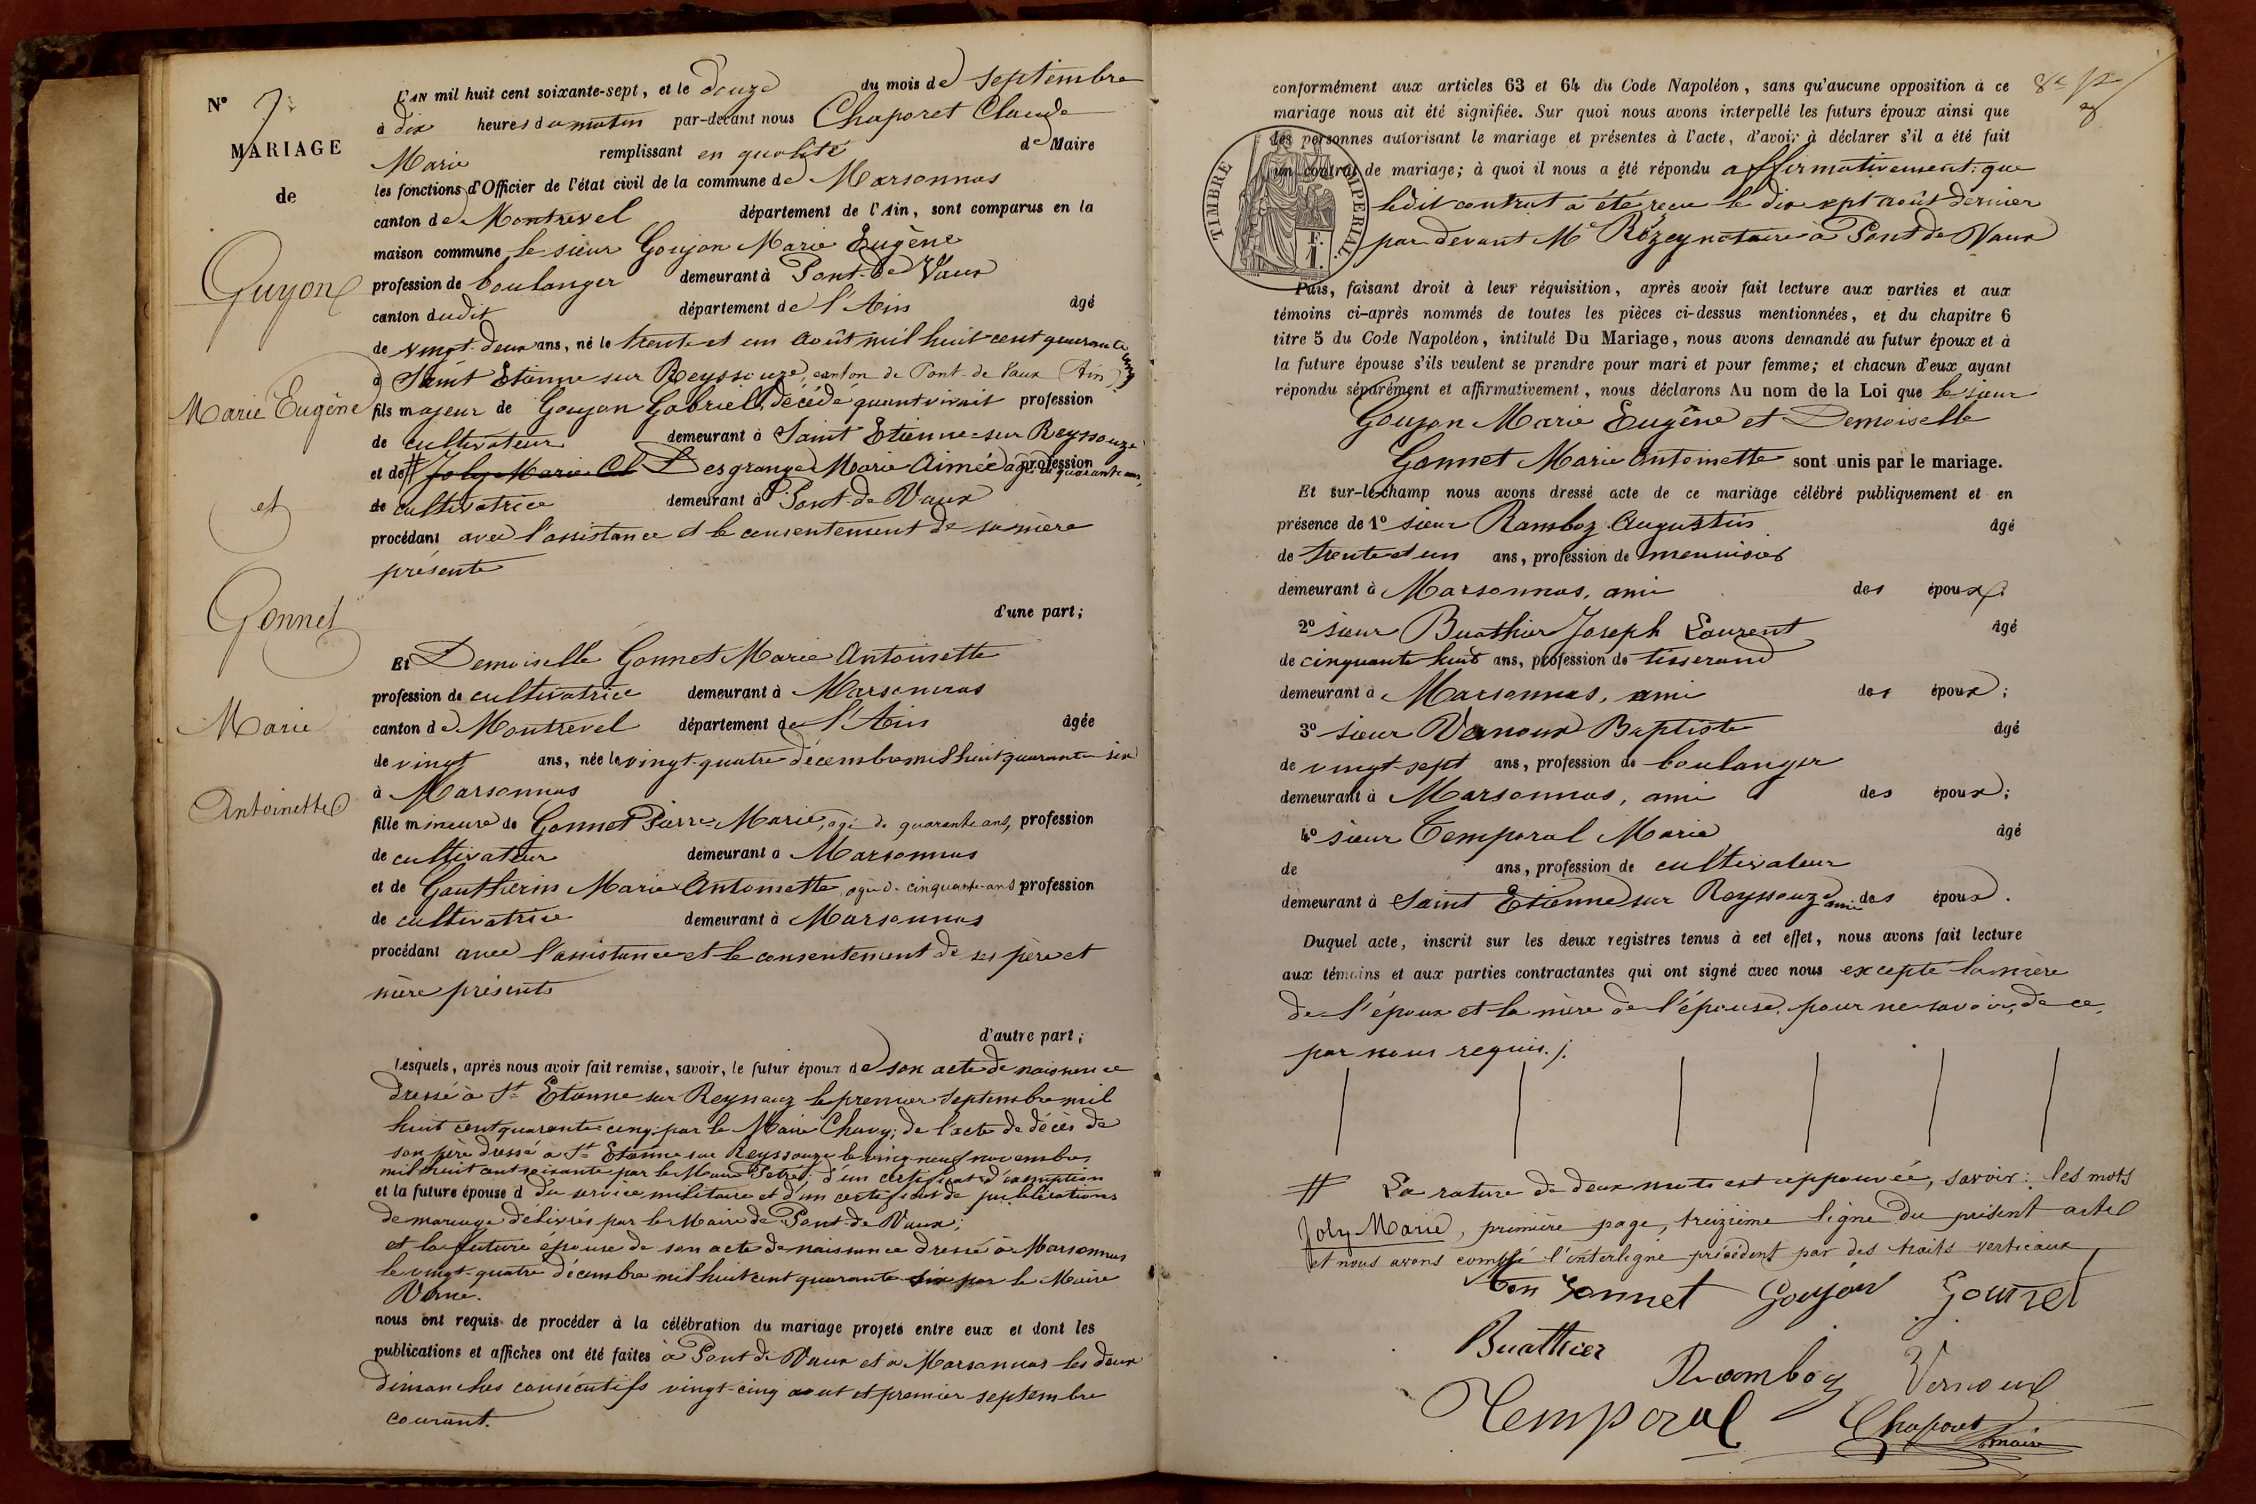 N° 7
MARIAGE
de
Guyon
Marie Eugène
et
Gonnet
Marie
Antoinette
L'AN mil huit cent soixante-sept, et le douze du mois de septembre
à dix heures du matin par-devant nous Chaporet Claude
Marie remplissant en qualité de Maire
les fonctions d'Officier de l'état civil de la commune de Marsonnas
canton de Montrevel département de l'Ain, sont comparus en la
maison commune le sieur Goujon Marie Eugène
profession de boulanger demeurant à Pont-de-Vaux
canton dudit département de l'Ain âgé
de vingt-deux ans, né le trente et un août mil huit cent quarante cinq
à Saint Etienne sur Reyssouze, canton de Pont-de-Vaux (Ain)
fils majeur de Goujon Gabriel, décédé quant vivait profession
de cultivateur demeurant à Saint Etienne-sur Reyssouze
et de # Joly Marie Cl Desgranges Marie Aimée âgée de quarante ans, profession
de cultivatrice demeurant à Pont-de-Vaux
procédant avec l'assistance et le consentement de sa mère
présente
d'une part;
Et Demoiselle Gonnet Marie Antoinette
profession de cultivatrice demeurant à Marsonnas
canton de Montrevel département de l'Ain âgée
de vingt ans, née le vingt-quatre décembre mil huit quarante-six
à Marsonnas
fille mineure de Gonnet Pierre-Marie, âgé de quarante ans, profession
de cultivateur demeurant à Marsonnas
et de Gautherin Marie Antoinette, âgée de cinquante ans profession
de cultivatrice demeurant à Marsonnas
procédant avec l'assistance et le consentement de ses père et
mère présents
d'autre part;
Lesquels, après nous avoir fait remise, savoir, le futur époux de son acte de naissance
dressé à St Etienne sur Reyssouz le premier septembre mil
huit cent quarante cinq par le Maire Chavy; de l'acte de décès de
son père dressé à St Etienne sur Reyssouze le vingt neuf novembre
mil huit cent soixante par le Maire Petret; d'un certificat d'exemption
et la future épouse d du service militaire et d'un certificat de publications
de mariage délivrés par le Maire de Pont-de-Vaux;
et la future épouse de son acte de naissance dressé à Marsonnas
le vingt-quatre décembre mil huit cent quarante six par le Maire
Verne.
nous ont requis de procéder à la célébration du mariage projeté entre eux et dont les
publications et affiches ont été faites à Pont de Vaux et à Marsonnas les deux
dimanches consécutifs vingt-cinq aout et premier septembre
courant.
conformément aux articles 63 et 64 du Code Napoléon, sans qu'aucune opposition à ce
mariage nous ait été signifiée. Sur quoi nous avons interpellé les futurs époux ainsi que
les personnes autorisant le mariage et présentes à l'acte, d'avoir à déclarer s'il a été fait
un contrat de mariage; à quoi il nous a été répondu affirmativement: que
ledit contrat a été reçu le dix sept août dernier
par devant Me Rézey notaire à Pont de Vaux
TIMBRE IMPERIAL
F. 1
Puis, faisant droit à leur réquisition, après avoir fait lecture aux parties et aux
témoins ci-après nommés de toutes les pièces ci-dessus mentionnées, et du chapitre 6
titre 5 du Code Napoléon, intitulé Du Mariage, nous avons demandé au futur époux et à
la future épouse s'ils veulent se prendre pour mari et pour femme; et chacun d'eux ayant
répondu séparément et affirmativement, nous déclarons Au nom de la Loi que le sieur
Goujon Marie Eugène et Demoiselle
Gonnet Marie Antoinette sont unis par le mariage.
Et sur-le-champ nous avons dressé acte de ce mariage célébré publiquement et en
présence de 1° sieur Ramboz Augustin âgé
de trente et un ans, profession de menuisier
demeurant à Marsonnas, ami des époux;
2° sieur Buathier Joseph Laurent âgé
de cinquante huit ans, profession de tisserand
demeurant à Marsonnas, ami des époux;
3° sieur Vernoux Baptiste âgé
de vingt-sept ans, profession de boulanger
demeurant à Marsonnas, ami des époux;
4° sieur Temporal Marie âgé
de ans, profession de cultivateur
demeurant à Saint Etienne sur Reyssouze ami des époux.
Duquel acte, inscrit sur les deux registres tenus à cet effet, nous avons fait lecture
aux témoins et aux parties contractantes qui ont signé avec nous excepté la mère
de l'époux et la mère de l'épouse, pour ne savoir, de ce,
par nous requis./.
# La rature de deux mots est approuvée, savoir: les mots
Joly Marie, première page, treizième ligne du présent acte
et nous avons comblé l'interligne précédent par des traits verticaux
Gonnet Goujon Gonnet
Buathier
Ramboz Vernoux
Temporal Chaporet
maire